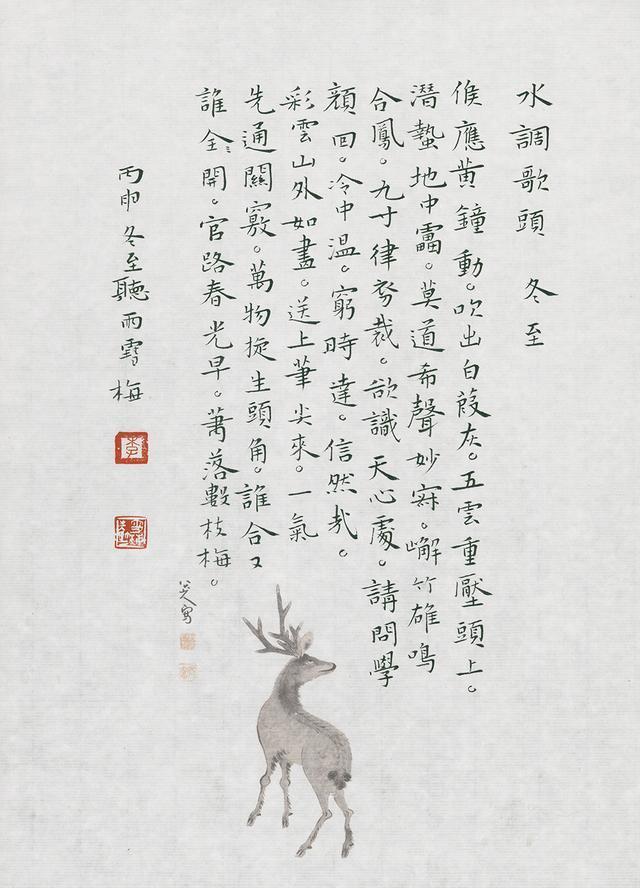 水調歌頭 冬至
候應黃鐘動。吹出白葭灰。五雲重壓頭上。
潛蟄地中靁。莫道希聲妙寂。嶰竹雄鳴
合鳳。九寸律初裁。欲識天心處。請問學
顏回。冷中溫。窮時達。信然哉。
彩雲山外如畫。送上筆尖來。一氣
先通關竅。萬物旋生頭角。誰合又
誰全〻開。官路春光早。落數枝梅。
丙申冬至聽雨雪梅
李
寫